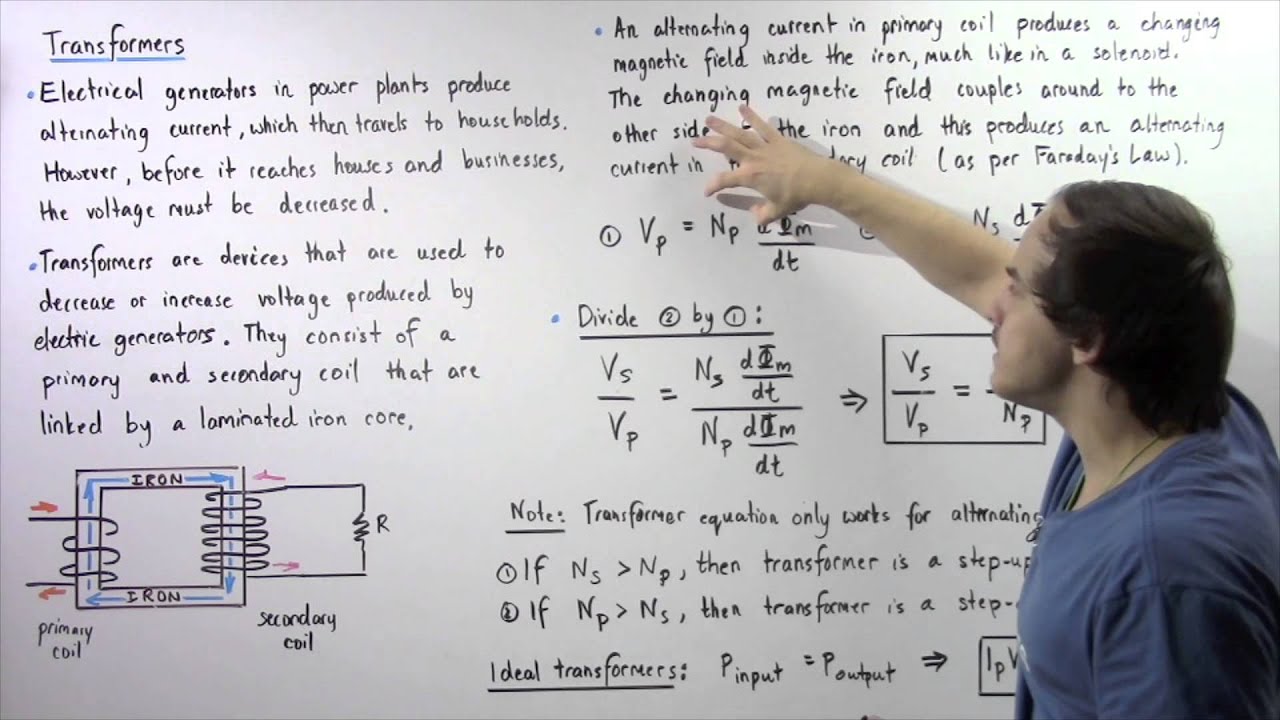 Transformers
• Electrical generators in power plants produce
alternating current, which then travels to households.
However, before it reaches houses and businesses,
the voltage must be decreased.
• Transformers are devices that are used to
decrease or increase voltage produced by
electric generators. They consist of a
primary and secondary coil that are
linked by a laminated iron core.
IRON
R
IRON
primary
coil
secondary
coil
• An alternating current in primary coil produces a changing
magnetic field inside the iron, much like in a solenoid.
The changing magnetic field couples around to the
other side the iron and this produces an alternating
current in coil (as per Faraday's Law).
① Vp = Np dΦm/dt
Ns dΦ
• Divide ② by ①:
Vs/Vp = (Ns dΦm/dt)/(Np dΦm/dt) ⇒ Vs/Vp = /Np
Note: Transformer equation only works for alternating
① If Ns > Np, then transformer is a step-up
② If Np > Ns, then transformer is a step-
Ideal transformers: Pinput = Poutput ⇒ IpV